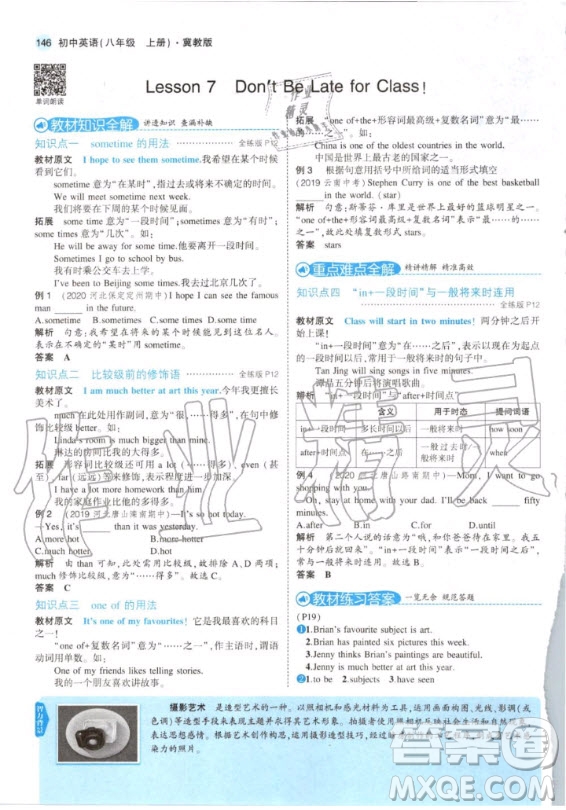 146 初中英语(八年级 上册)·冀教版
单词朗读
Lesson 7 Don't Be Late for Class!
教材知识全解 讲透知识 查漏补缺
知识点一 sometime 的用法 全练版 P12
教材原文 I hope to see them sometime.我希望在某个时候
看到它们。
sometime 意为“在某时”,指过去或将来不确定的时间。
We'll have a party sometime next week.
我们将要在下周的某个时候见面。
拓展 some time 意为“一段时间”; sometimes 意为“有时”;
some times 意为“几次”。如:
He will be away for some time.
他将要离开一段时间。
Sometimes I go to school by bus.
我有时乘公交车去上学。
I've been to Beijing some times.
我去过北京几次。
例 1 (2020 河北保定定州期中) I hope I can see the famous
man ______ in the future.
A.sometime B.sometimes C.some times
解析 句意:我希望在将来的某个时候我能见到那位名人。
表示在不确定的“某时”用 sometime。
答案 A
知识点二 比较级前的修饰语 全练版 P12
教材原文 I am much better at art this year.今年我更擅长
美术了。
much 在此处用作副词,意为“很,……得多”,在句中
修饰比较级 better。如:
Linda's room is much bigger than mine.
拓展 形容词比较级还可用 a lot (……得多)、even (甚至)、
far (远远)等来修饰,
例 2 (2019 河北唐山期中)—It's so hot today.
—Yes, it's ______ than it was yesterday.
A.more hot B.more hotter
C.much hotter D.much hot
答案 C
知识点三 one of 的用法
教材原文 It's one of my favourites! 它是我最喜欢的科目
之一!
“one of+复数名词”意为“……之一”,作主语时,谓语
动词用单数。如:
One of my friends likes telling stories.
我的一个朋友喜欢讲故事。
拓展 “one of+the+形容词最高级+复数名词”意为“最……
的……之一”。如:
China is one of the oldest countries in the world.
中国是世界上最古老的国家之一。
例 3 根据句意用括号中所给词的适当形式填空
(2019 云南中考) Stephen Curry is one of the best basketball
______ in the world. (star)
解析 句意:斯蒂芬·库里是世界上最好的篮球明星之一。
“one of+the+形容词最高级+复数名词”表示“最……的……
之一”。
答案 stars
重点难点全解 精讲精解 精准高效
知识点四 “in+一段时间”与一般将来时连用
全练版 P12
教材原文 Class will start in two minutes! 两分钟之后开
始上课!
“in+一段时间”意为“在……之后”,表示以现在为起点
的一段时间之后,常用于一般将来时的句子中。
Tan Jing will sing songs in five minutes.
谭晶五分钟后将演唱歌曲。
解析 “in+一段时间”与“after+时间点”
含义 用于时态 提问词语
in+一段时间 多长时间以后 一般将来时 how soon
after+时间点 在……之后 一般过去时/一般将来时 when
例 4 (2020 河北唐山路南期中)—Mom, I want to go shopping.
—Oh, stay at home with your dad. I'll be back ______ fifty
minutes.
A.after B.in C.for D.until
解析 第二个人说话的意思为“哦,和你爸爸待在家里。我五
十分钟后就回来。”“in+一段时间”意为“在……之后”,
常与一般将来时连用。
答案 B
教材练习答案 一览无余 规范答题
(P19)
❶1.Brian's favourite subject is art.
2.Brian has painted six pictures this week.
3.Jenny thinks Brian's paintings are beautiful.
4.Jenny is much better at art this year.
❷1.to be 2.subjects 3.have seen
智力背景
摄影艺术 是造型艺术的一种。以照相机和感光材料为工具,运用画面构图、光线、影调(或
色调)等造型手段来表现主题并求得其艺术形象。拍摄者使用照相机反映社会生活和自然现象,
表达思想感情。摄影艺术运用摄影造型技巧,
染力的照片。
作业精灵
答案圈
MXQE.COM